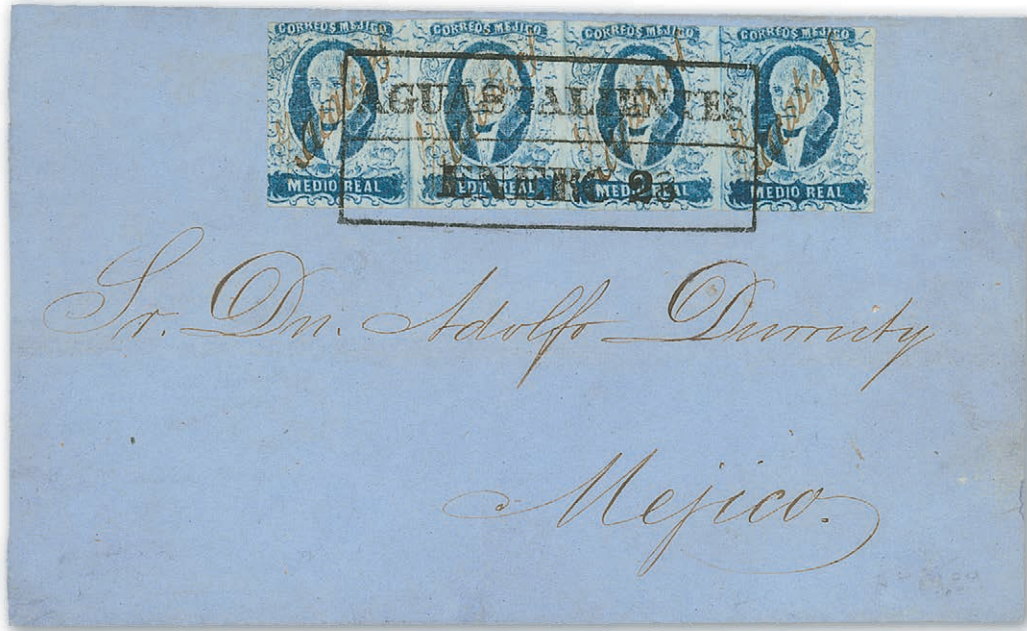 CORREOS MEJICO CORREOS MEJICO CORREOS MEJICO CORREOS MEJICO
AGUASCALIENTES
MEDIO REAL MEDIO REAL MEDIO REAL MEDIO REAL
ENERO 23
Sr. Dn. Adolfo Durruty
Mejico.